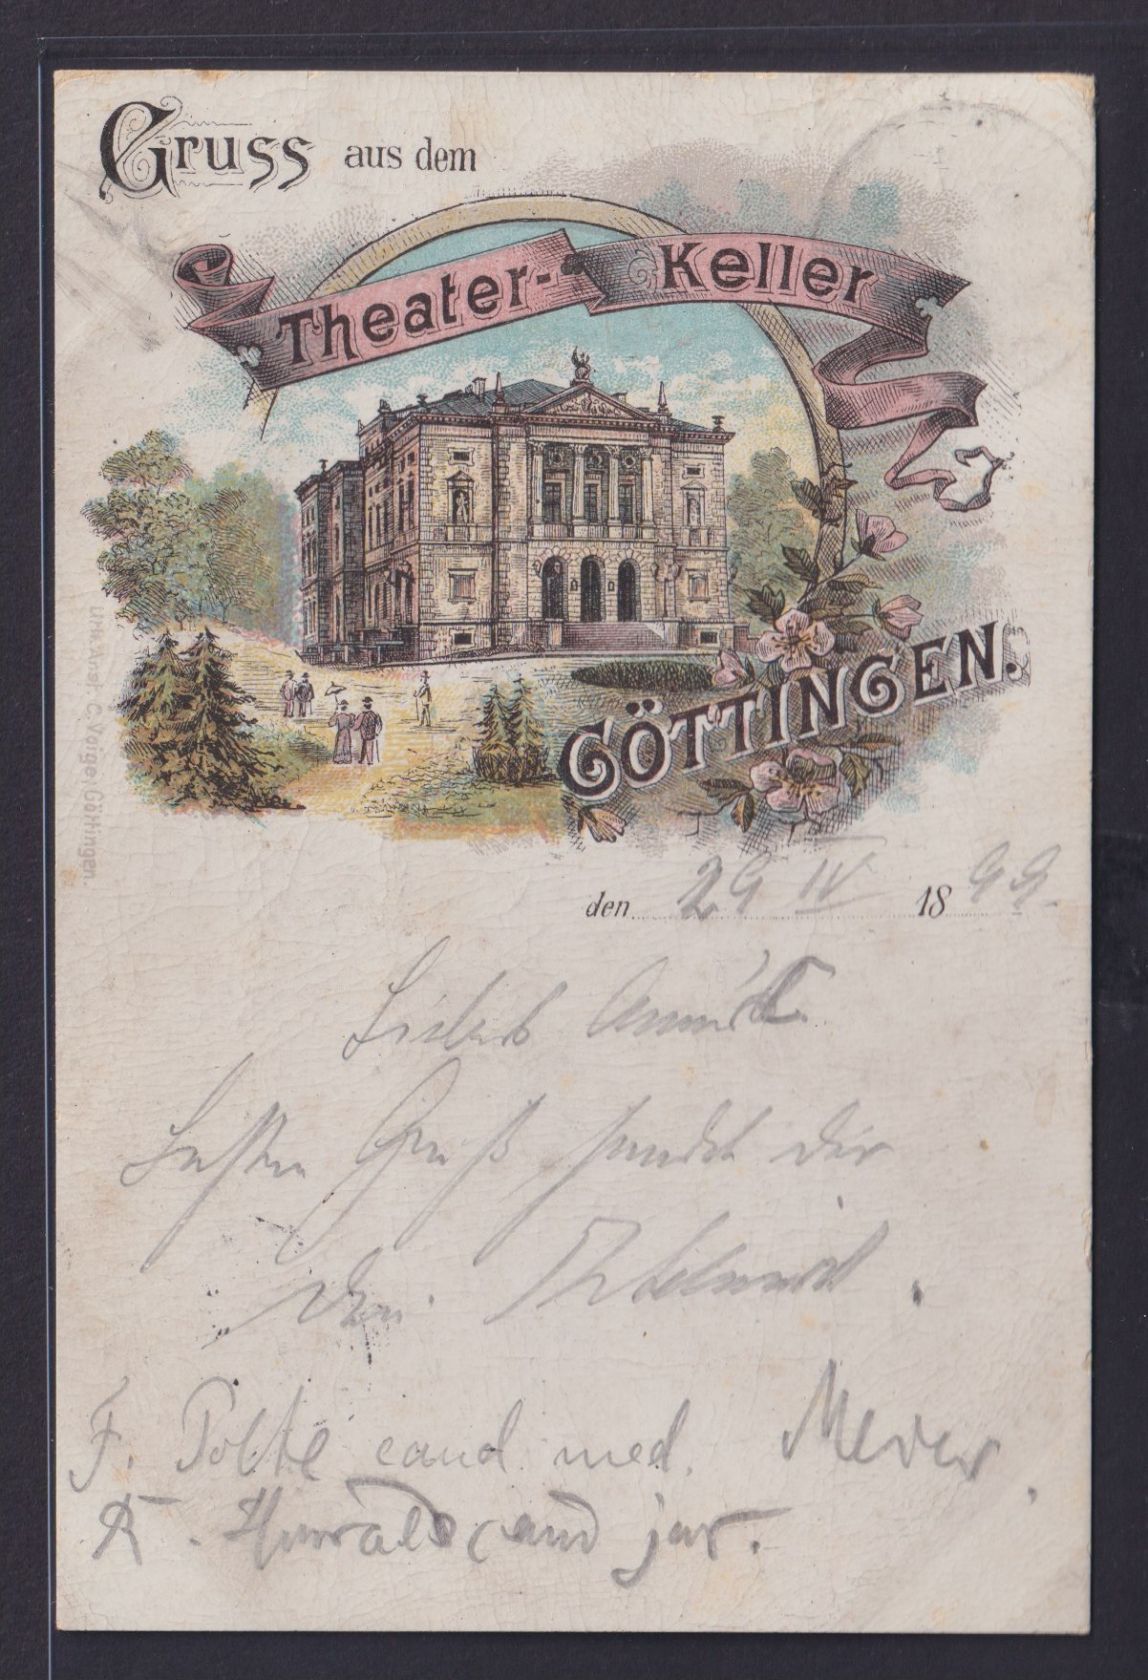 Gruss aus dem
Theater-Keller
GÖTTINGEN.
Lith. Anst. C. Voige, Göttingen.
den 29 IV 1899.
Liebes
Besten Gruß sendet Dir
Dein
F. Polte cand med. Meyer.
cand jur.